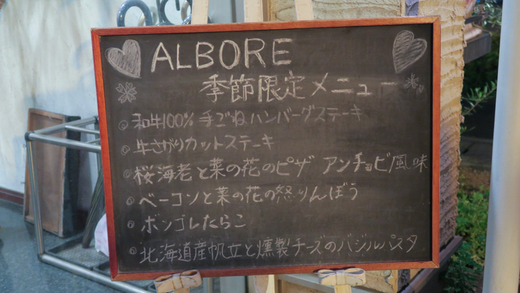 ALBORE
季節限定メニュー
和牛100% 手ごねハンバーグステーキ
牛さがりカットステーキ
桜海老と菜の花のピザ アンチョビ風味
ベーコンと菜の花の怒りんぼう
ボンゴレたらこ
北海道産帆立と燻製チーズのバジルパスタ